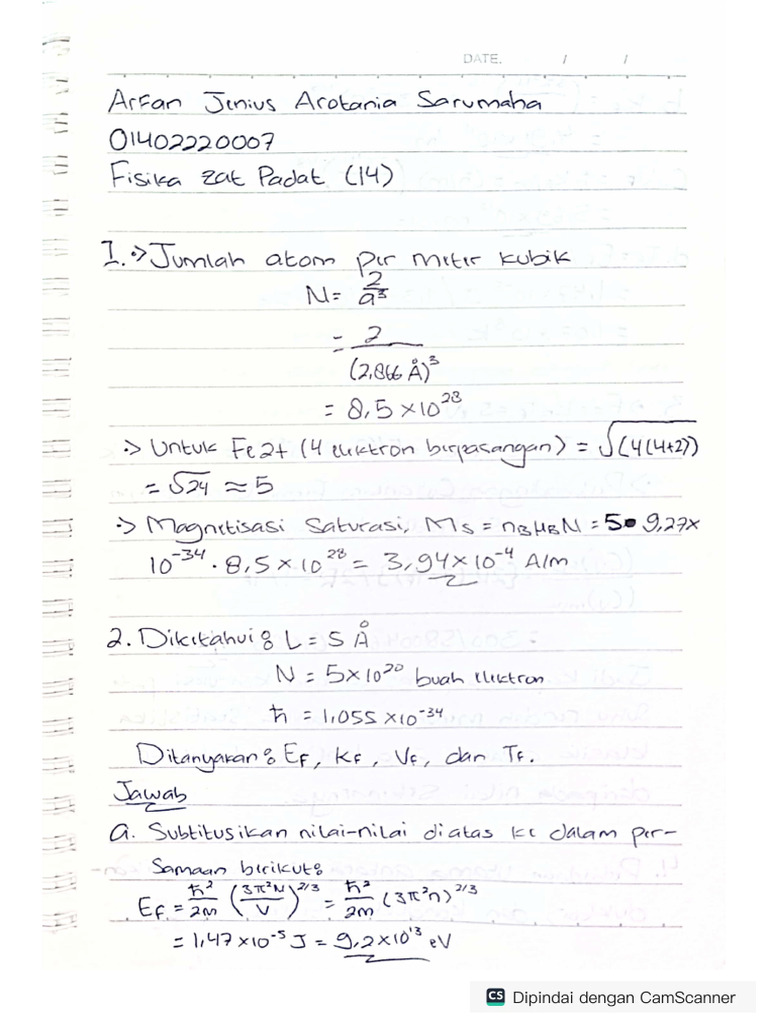 DATE. / /
Arfan Jenius Arotania Sarumaha
01402220007
Fisika zat Padat (14)
1. :> Jumlah atom per meter kubik
N = 2/a³
= 2/(2,866 Å)³
= 8,5 × 10²⁸
:> Untuk Fe2+ (4 elektron berpasangan) = √(4(4+2))
= √24 ≈ 5
:> Magnetisasi Saturasi, Ms = nBμBN = 5 • 9,27×
10⁻³⁴ · 8,5 × 10²⁸ = 3,94 × 10⁻⁴ A/m
2. Diketahui : L = 5 Å
N = 5 × 10²⁰ buah elektron
ħ = 1,055 × 10⁻³⁴
Ditanyakan : EF, KF, VF, dan TF.
Jawab
a. Subtitusikan nilai-nilai diatas ke dalam per-
samaan berikut :
EF = ħ²/2m (3π²N/V)^2/3 = ħ²/2m (3π²n)^2/3
= 1,47 × 10⁻⁵ J = 9,2 × 10¹³ eV
CS Dipindai dengan CamScanner